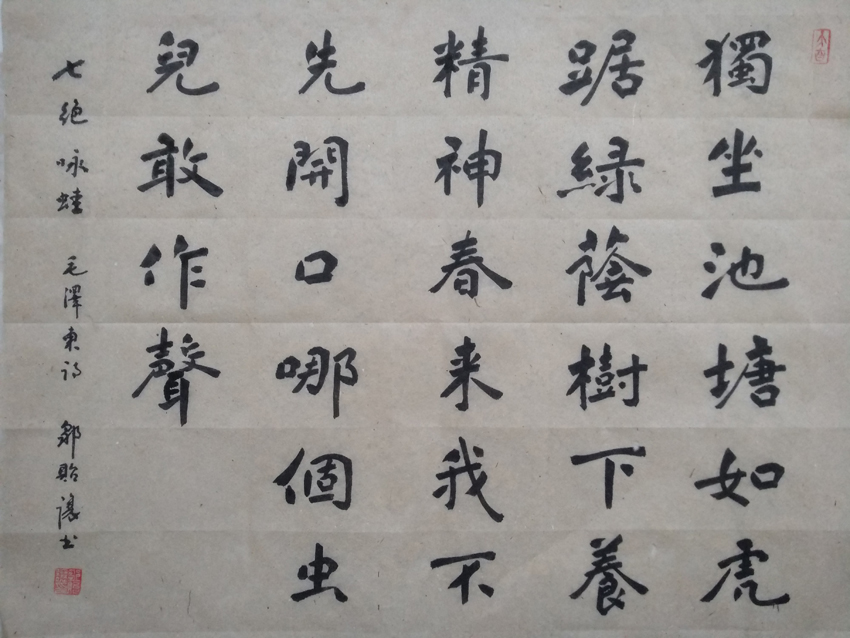 獨坐池塘如虎
踞綠蔭樹下養
精神春来我不
先開口哪個虫
兒敢作聲
七絕咏蛙 毛澤东詩 鄒貽讓书